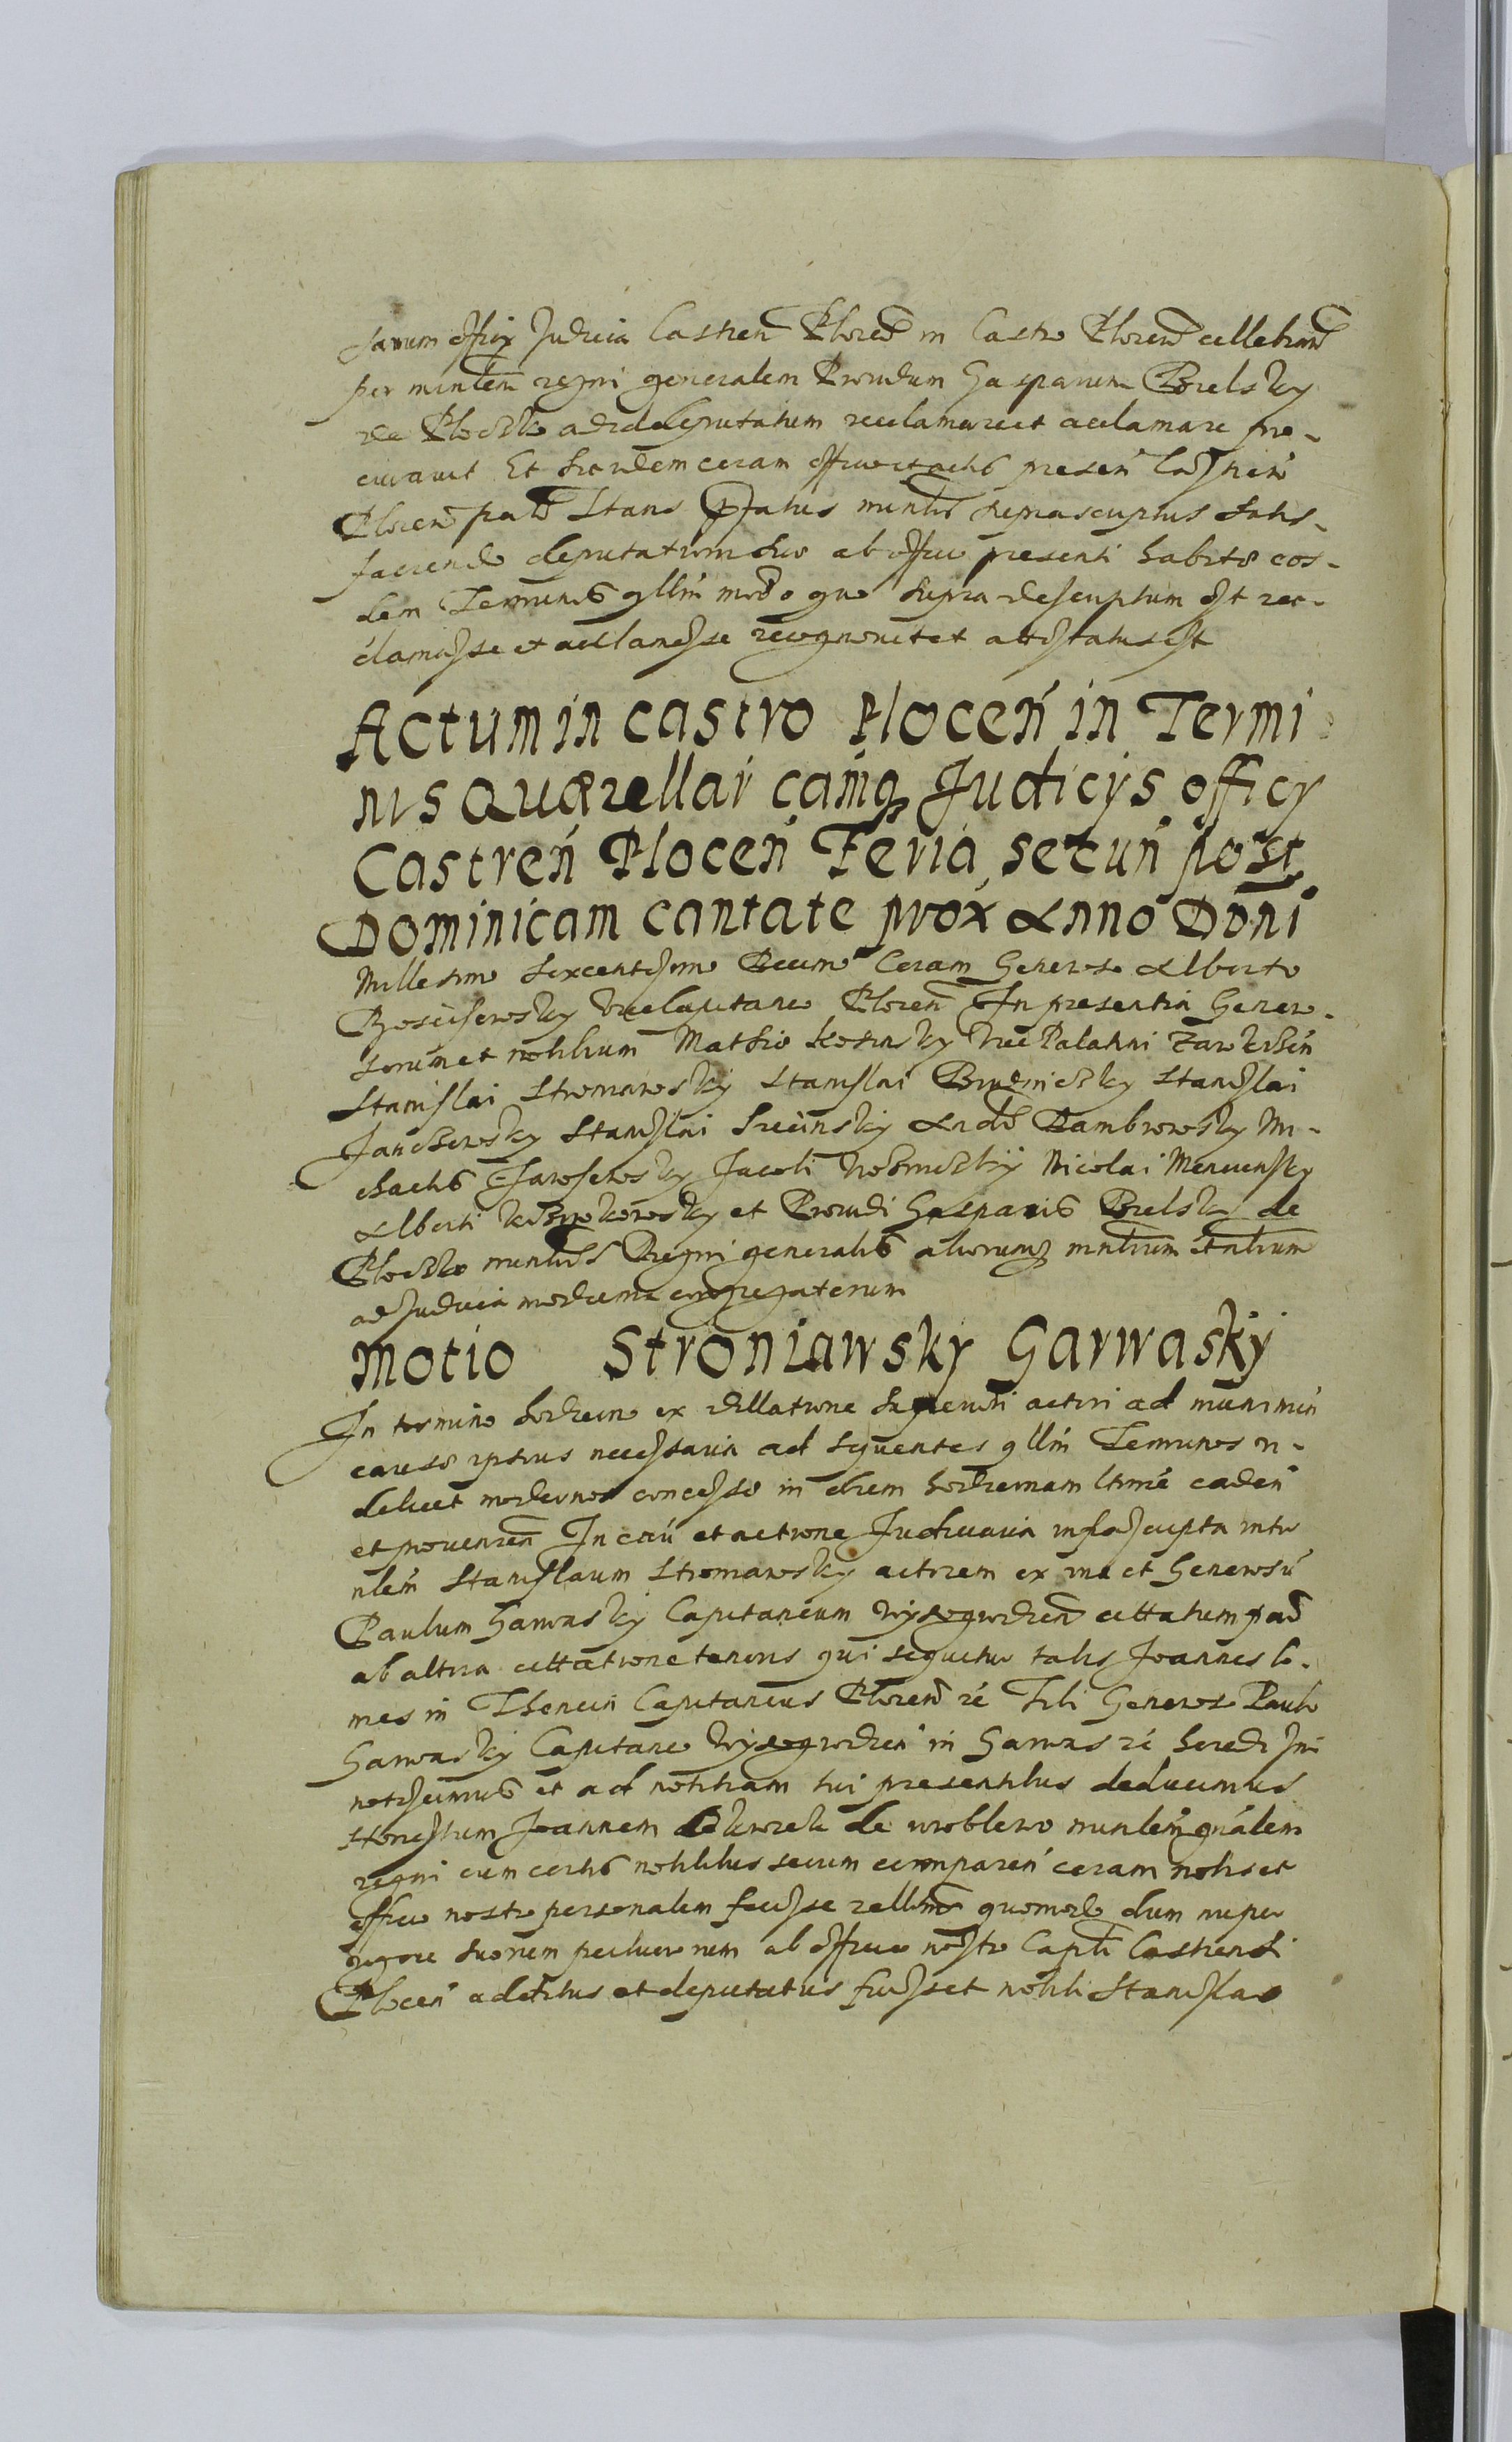 sarum officij Judicia Castren Plocen in Castro Plocen cellebran
per minlem regni generalem Providum Gasparum Bielsky
de Ploczko ad id deputatum reclamavit acclamare pro-
curavit Et ibidem coram officio et actis presen Castren
Plocen pal Stans pfatus minlis suprascriptus satis-
faciendo deputationi suo ab officio presenti habito eos-
dem Terminos qllm modo quo supra descriptum est rec-
clamasse et acclamasse recognovit et attestatus est
Actum in castro Plocen in Termi
nis Quærellar camq Judicijs officij
Castren Plocen Feria secun post
Dominicam Cantate prox Anno Dnni
Millesimo Sexcentesimo Decimo Coram Generoso Alberto
vicecapitaneo Plocen In presentia Genero-
sorum et nobilium Mathie Kosinsky vicePalatini Zawkrhen
Stanislai Stroniawsky Stanislai Brudniczky Stanislai
Janczewsky Stanislai Sieciński And Dambrowsky Mi-
chaelis Jaroszewsky Jacobi Nicolai
Alberti et Providi Gasparis Bielsky de
Ploczko minlis Regni generalis aliorumq minlium
ad Judicia moderna congregatorum
Motio Stroniawsky Garwasky
In termino hodierno ex dillatione Superiori actori ad munimen
cause ipsius necessaria ad sequentes qllm Terminos vi-
delicet modernos concesso in diem hodiernam ltime caden
et provenien In cau et actione Judiciaria infrascripta inter
nlem Stanislaum Stroniawsky actorem ex una et Generosu
Paulum Garwasky Capitaneum Wysegrodien cittatum pad
ab altera cittatione tenoris qui sequitur talis Joannes Co-
mes in Thencin Capitaneus Plocen ic Tibi Generoso Paulo
Garwasky Capitaneo Wysegrodien in Garwas ic heredi Ini
notescimus et ad notitiam tui presentibus deducimus
Honestum Joannem de Wroblewo minlem gnalem
regni cum certis nobilibus secum comparen coram nobis et
officio nostro personalem fecisse rellnem quomodo dum nuper
vigore suorum ab officio nostro Capli Castrensi
Plocen additus et deputatus fuisset nobili Stanislao